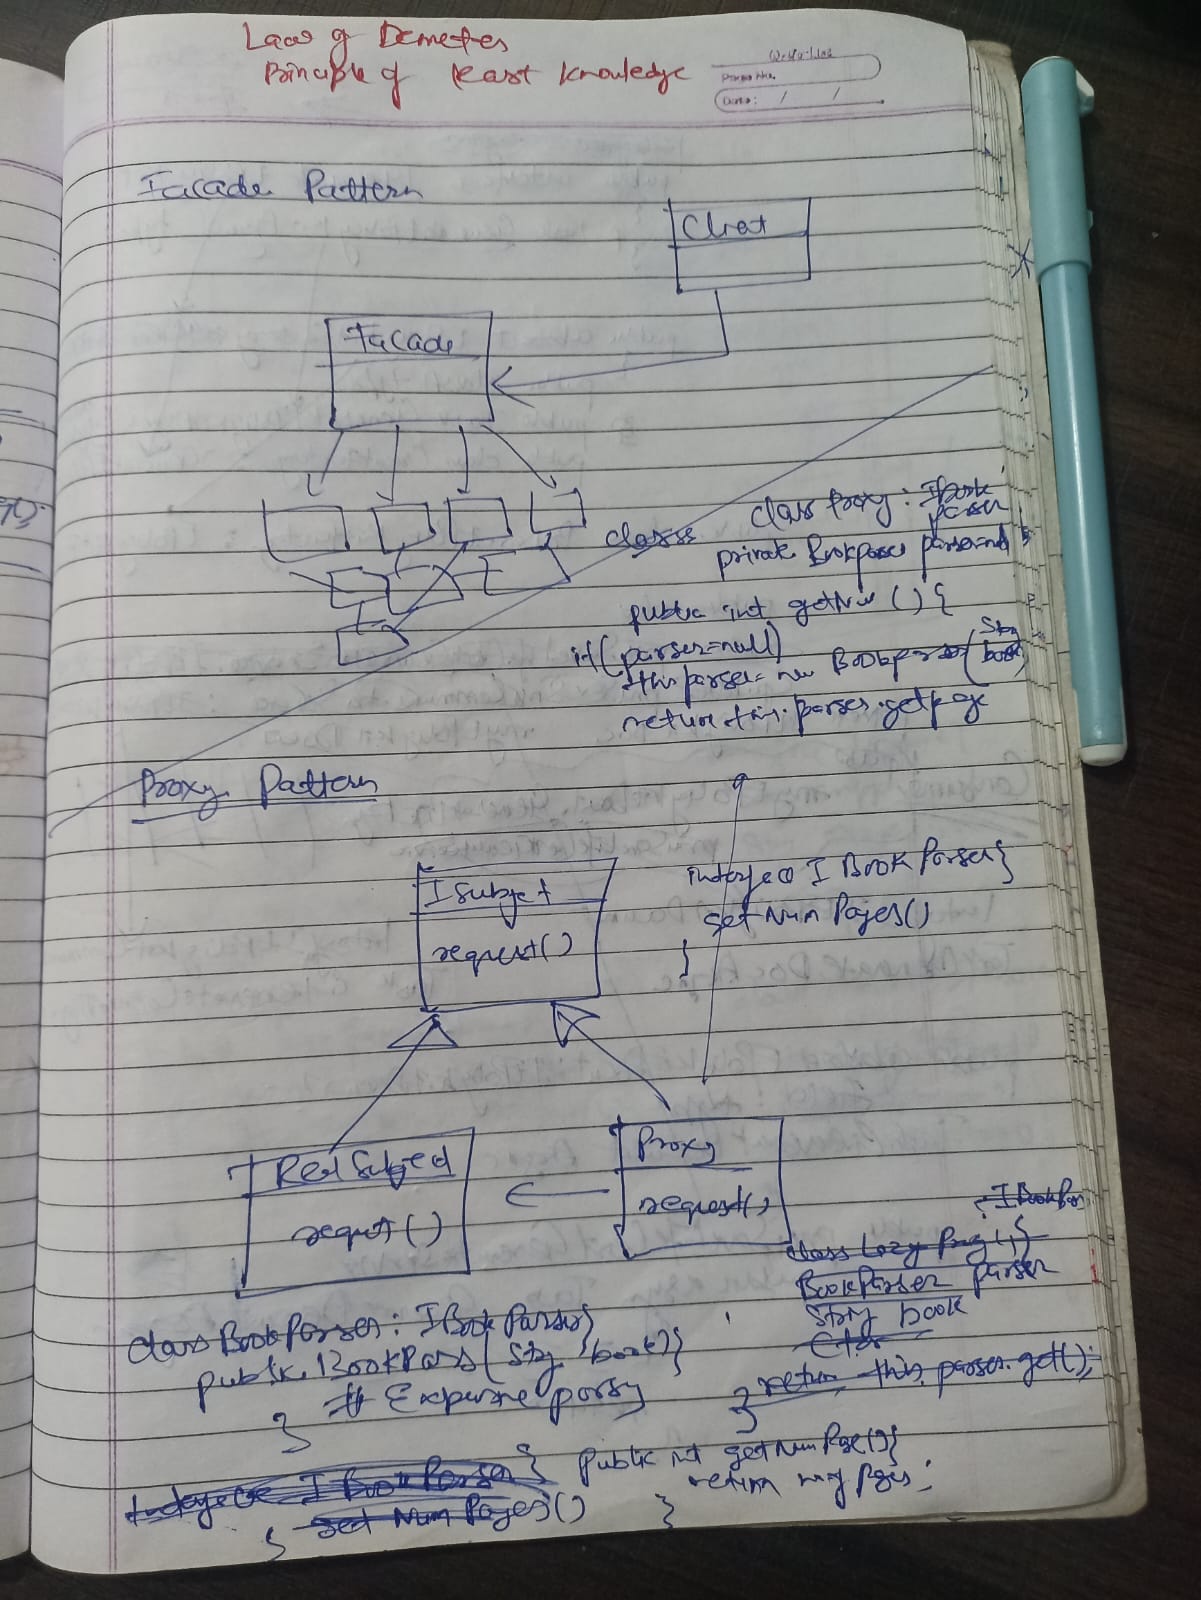 Law of Demeter
Principle of Least Knowledge
Date: / /
Facade Pattern
Client
Facade
classs
class Proxy : IBook
parser
private Bookparser parser=null
public int getNum () {
if (parser=null)
this.parser= new Bookparser(
book)
return this.parser.getpage
Proxy Pattern
ISubject
request()
interface I BOOK Parser{
get Num Pages()
}
Real Subject
request()
Proxy
request()
: IBookPar
class Lazy {
BookParser parser
String book
Ctor
return this.parser.get();
}
class BookParser: IBook Parser{
public BookPars( String book){
# Expensive parsing
}
Interface I Book Parser {
get Num Pages()
}
public int getNumPage(){
return Pages;
}